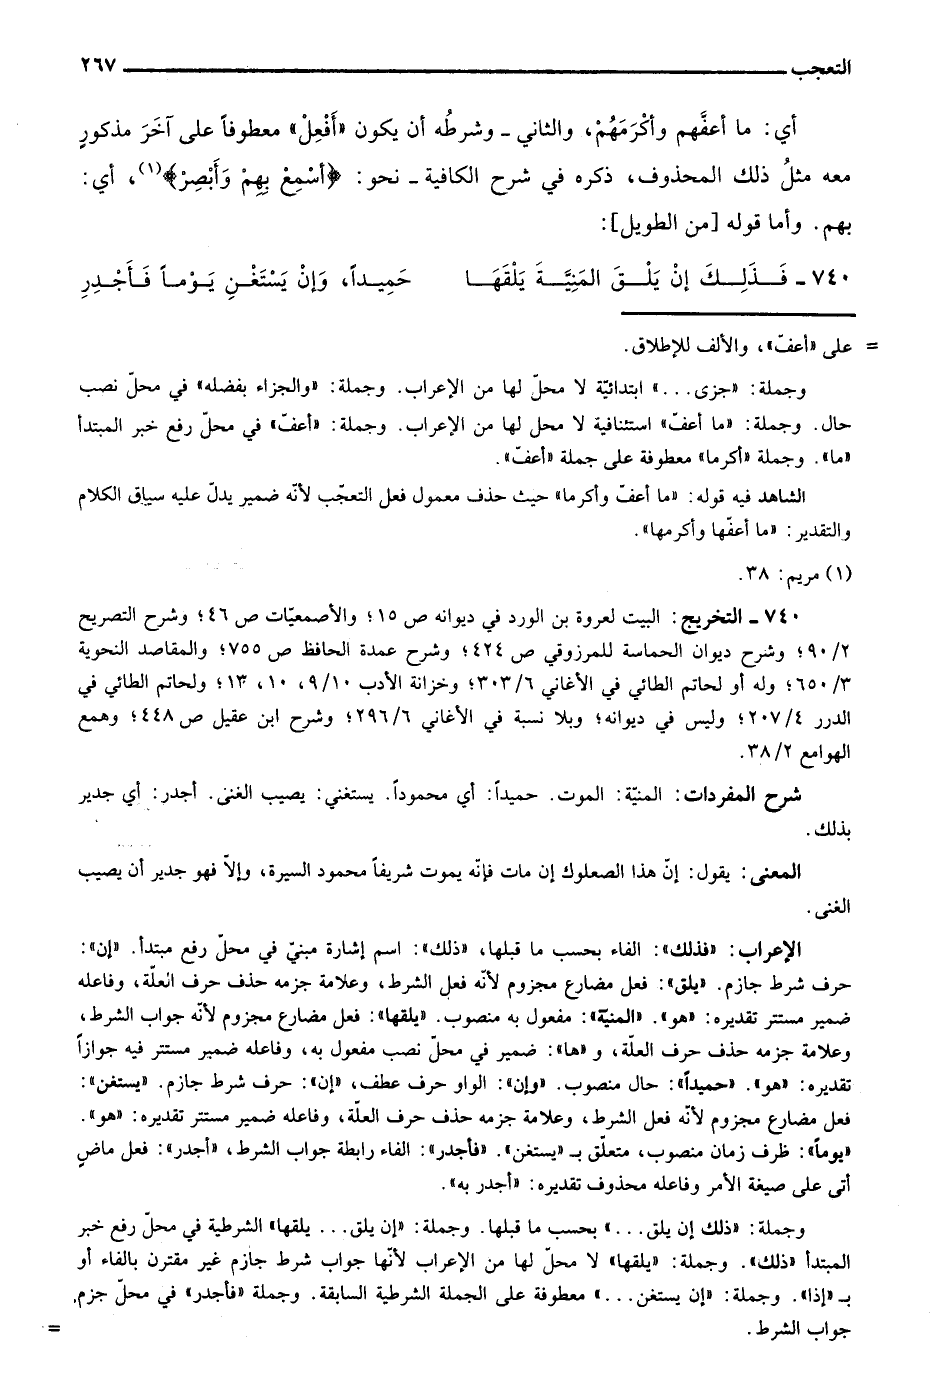 التعجب ـــــــــــــــــــــــــــــــــــــــــــــــــــــــــــــ ٢٦٧
أي: ما أعفَّهم وأكْرَمَهُمْ، والثاني ـ وشرطُه أن يكون «أَفْعِلْ» معطوفاً على آخَرَ مذكورٍ
معه مثلُ ذلك المحذوف، ذكره في شرح الكافية ـ نحو: ﴿أَسْمِعْ بِهِمْ وَأَبْصِرْ﴾(١)، أي:
بهم. وأما قوله [من الطويل]:
٧٤٠ ـ فَـذَلِـكَ إنْ يَلْـقَ المَنِيَّـةَ يَلْقَهَـا حَمِيـداً، وَإنْ يَسْتَغْـنِ يَـوْمـاً فَـأَجْـدِرِ
= على «أعفّ»، والألف للإطلاق.
وجملة: «جزى...» ابتدائيّة لا محلّ لها من الإعراب. وجملة: «والجزاء بفضله» في محلّ نصب
حال. وجملة: «ما أعفّ» استئنافية لا محل لها من الإعراب. وجملة: «أعفّ» في محلّ رفع خبر المبتدأ
«ما». وجملة «أكرما» معطوفة على جملة «أعفّ».
الشاهد فيه قوله: «ما أعفّ وأكرما» حيث حذف معمول فعل التعجّب لأنّه ضمير يدلّ عليه سياق الكلام
والتقدير: «ما أعفّها وأكرمها».
(١) مريم: ٣٨.
٧٤٠ ـ التخريج: البيت لعروة بن الورد في ديوانه ص ١٥؛ والأصمعيّات ص ٤٦؛ وشرح التصريح
٢/ ٩٠؛ وشرح ديوان الحماسة للمرزوقي ص ٤٢٤؛ وشرح عمدة الحافظ ص ٧٥٥؛ والمقاصد النحوية
٣/ ٦٥٠؛ وله أو لحاتم الطائي في الأغاني ٦/ ٣٠٣؛ وخزانة الأدب ١٠/ ٩، ١٠، ١٣؛ ولحاتم الطائي في
الدرر ٤/ ٢٠٧؛ وليس في ديوانه؛ وبلا نسبة في الأغاني ٦/ ٢٩٦؛ وشرح ابن عقيل ص ٤٤٨؛ وهمع
الهوامع ٢/ ٣٨.
شرح المفردات: المنيّة: الموت. حميداً: أي محموداً. يستغني: يصيب الغنى. أجدر: أي جدير
بذلك.
المعنى: يقول: إنّ هذا الصعلوك إن مات فإنّه يموت شريفاً محمود السيرة، وإلاّ فهو جدير أن يصيب
الغنى.
الإعراب: «فذلك»: الفاء بحسب ما قبلها، «ذلك»: اسم إشارة مبنيّ في محلّ رفع مبتدأ. «إن»:
حرف شرط جازم. «يلق»: فعل مضارع مجزوم لأنّه فعل الشرط، وعلامة جزمه حذف حرف العلّة، وفاعله
ضمير مستتر تقديره: «هو». «المنيّة»: مفعول به منصوب. «يلقها»: فعل مضارع مجزوم لأنّه جواب الشرط،
وعلامة جزمه حذف حرف العلّة، و «ها»: ضمير في محلّ نصب مفعول به، وفاعله ضمير مستتر فيه جوازاً
تقديره: «هو». «حميداً»: حال منصوب. «وإن»: الواو حرف عطف، «إن»: حرف شرط جازم. «يستغن»:
فعل مضارع مجزوم لأنّه فعل الشرط، وعلامة جزمه حذف حرف العلّة، وفاعله ضمير مستتر تقديره: «هو».
«يوماً»: ظرف زمان منصوب، متعلّق بـ «يستغن». «فأجدر»: الفاء رابطة جواب الشرط، «أجدر»: فعل ماضٍ
أتى على صيغة الأمر وفاعله محذوف تقديره: «أجدر به».
وجملة: «ذلك إن يلق...» بحسب ما قبلها. وجملة: «إن يلق... يلقها» الشرطية في محلّ رفع خبر
المبتدأ «ذلك». وجملة: «يلقها» لا محلّ لها من الإعراب لأنّها جواب شرط جازم غير مقترن بالفاء أو
بـ «إذا». وجملة: «إن يستغن...» معطوفة على الجملة الشرطية السابقة. وجملة «فأجدر» في محلّ جزم
جواب الشرط. =